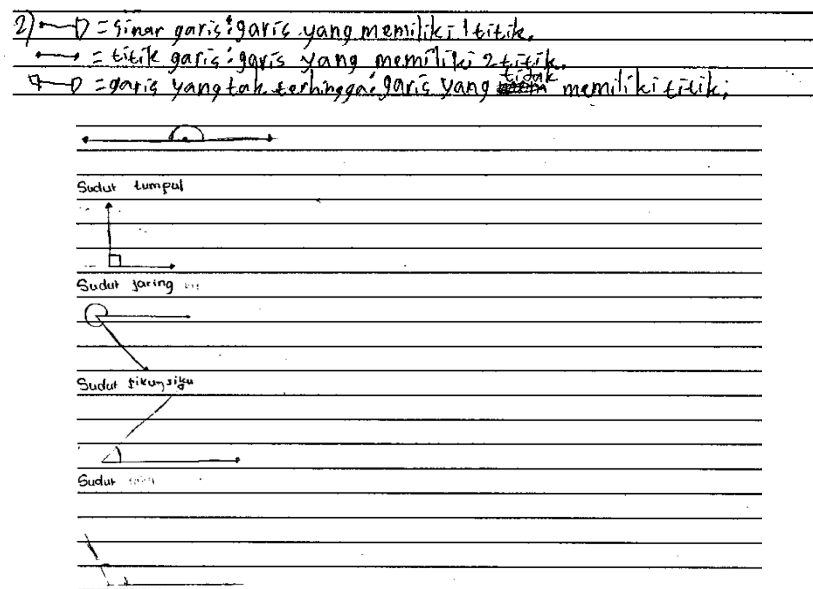 2) = sinar garis : garis yang memiliki 1 titik.
= titik garis : garis yang memiliki 2 titik.
= garis yang tak terhingga : garis yang tidak memiliki titik;
Sudut tumpul
Sudut jaring
Sudut sikun siku
Sudut